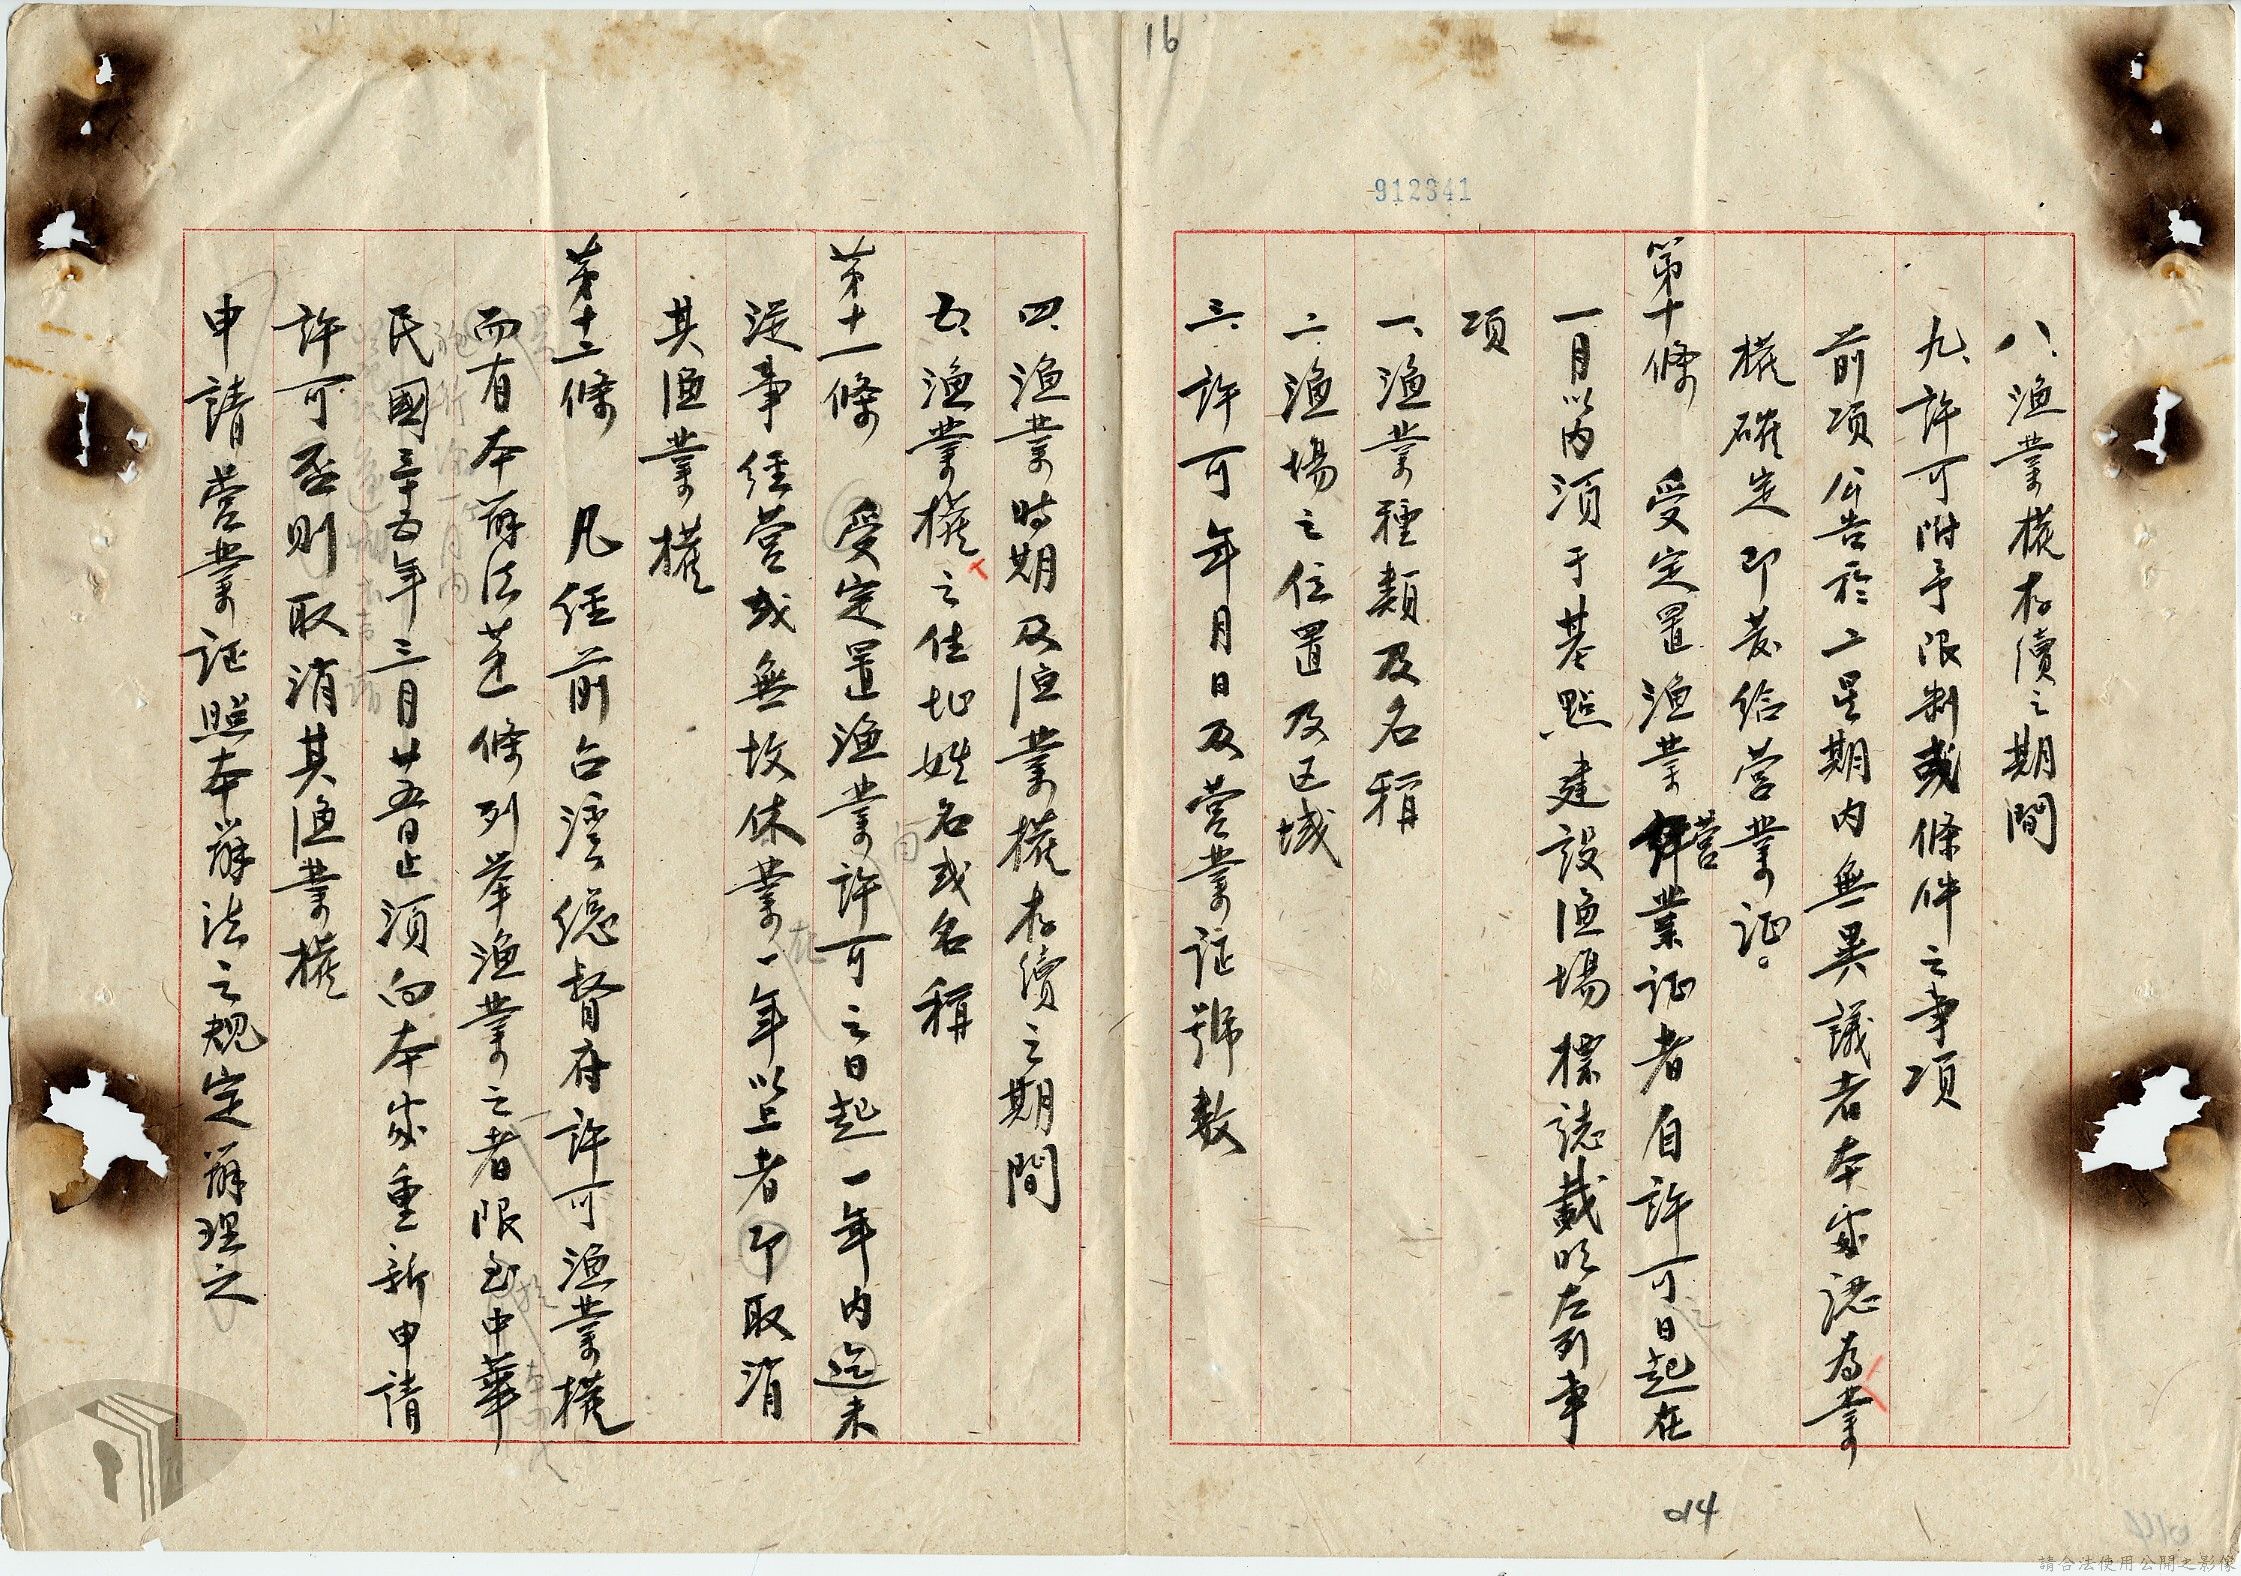 16
912341
八、漁業権存續之期間
九、許可附予限制或條件之事項
前項公告於二星期內無異議者本家認為業
権確定即發給营業证。
第十條　受定置漁業营業证者自許可日起在
一月以內須于基點建設漁場標誌載明左列事
項
一、漁業種類及名稱
二、漁場之位置及区域
三、許可年月日及营業证號数
四、漁業時期及漁業権存續之期間
五、漁業権之住址姓名或名稱
第十一條　受定置漁業許可之日起一年內迄未
從事经营或無故休業一年以上者即取消
其漁業権
第十二條　凡经前台湾総督府許可漁業権
而有本辦法第一條列举漁業之者限至中華
民國三十五年三月廿五日止須向本家重新申請
許可否則取消其漁業権
申請营業证照本辦法之規定辦理之
014
請合法使用公開之影像